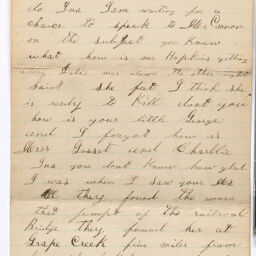 do Ina I am waiting for a
chance to speak to Mr Cannon
on the subject you know
what how is mr Hopkins getting
along I also was down the other night
haint she fat I think she
is ready to Kill dont you
how is your little George
and I forgot how is
Mrss Gosset and Charllie
Ina you dont know how glad
I was when I saw your
they found the woman
that jumpt of the railroad
Bridge they found her at
Grape Creek five miles from